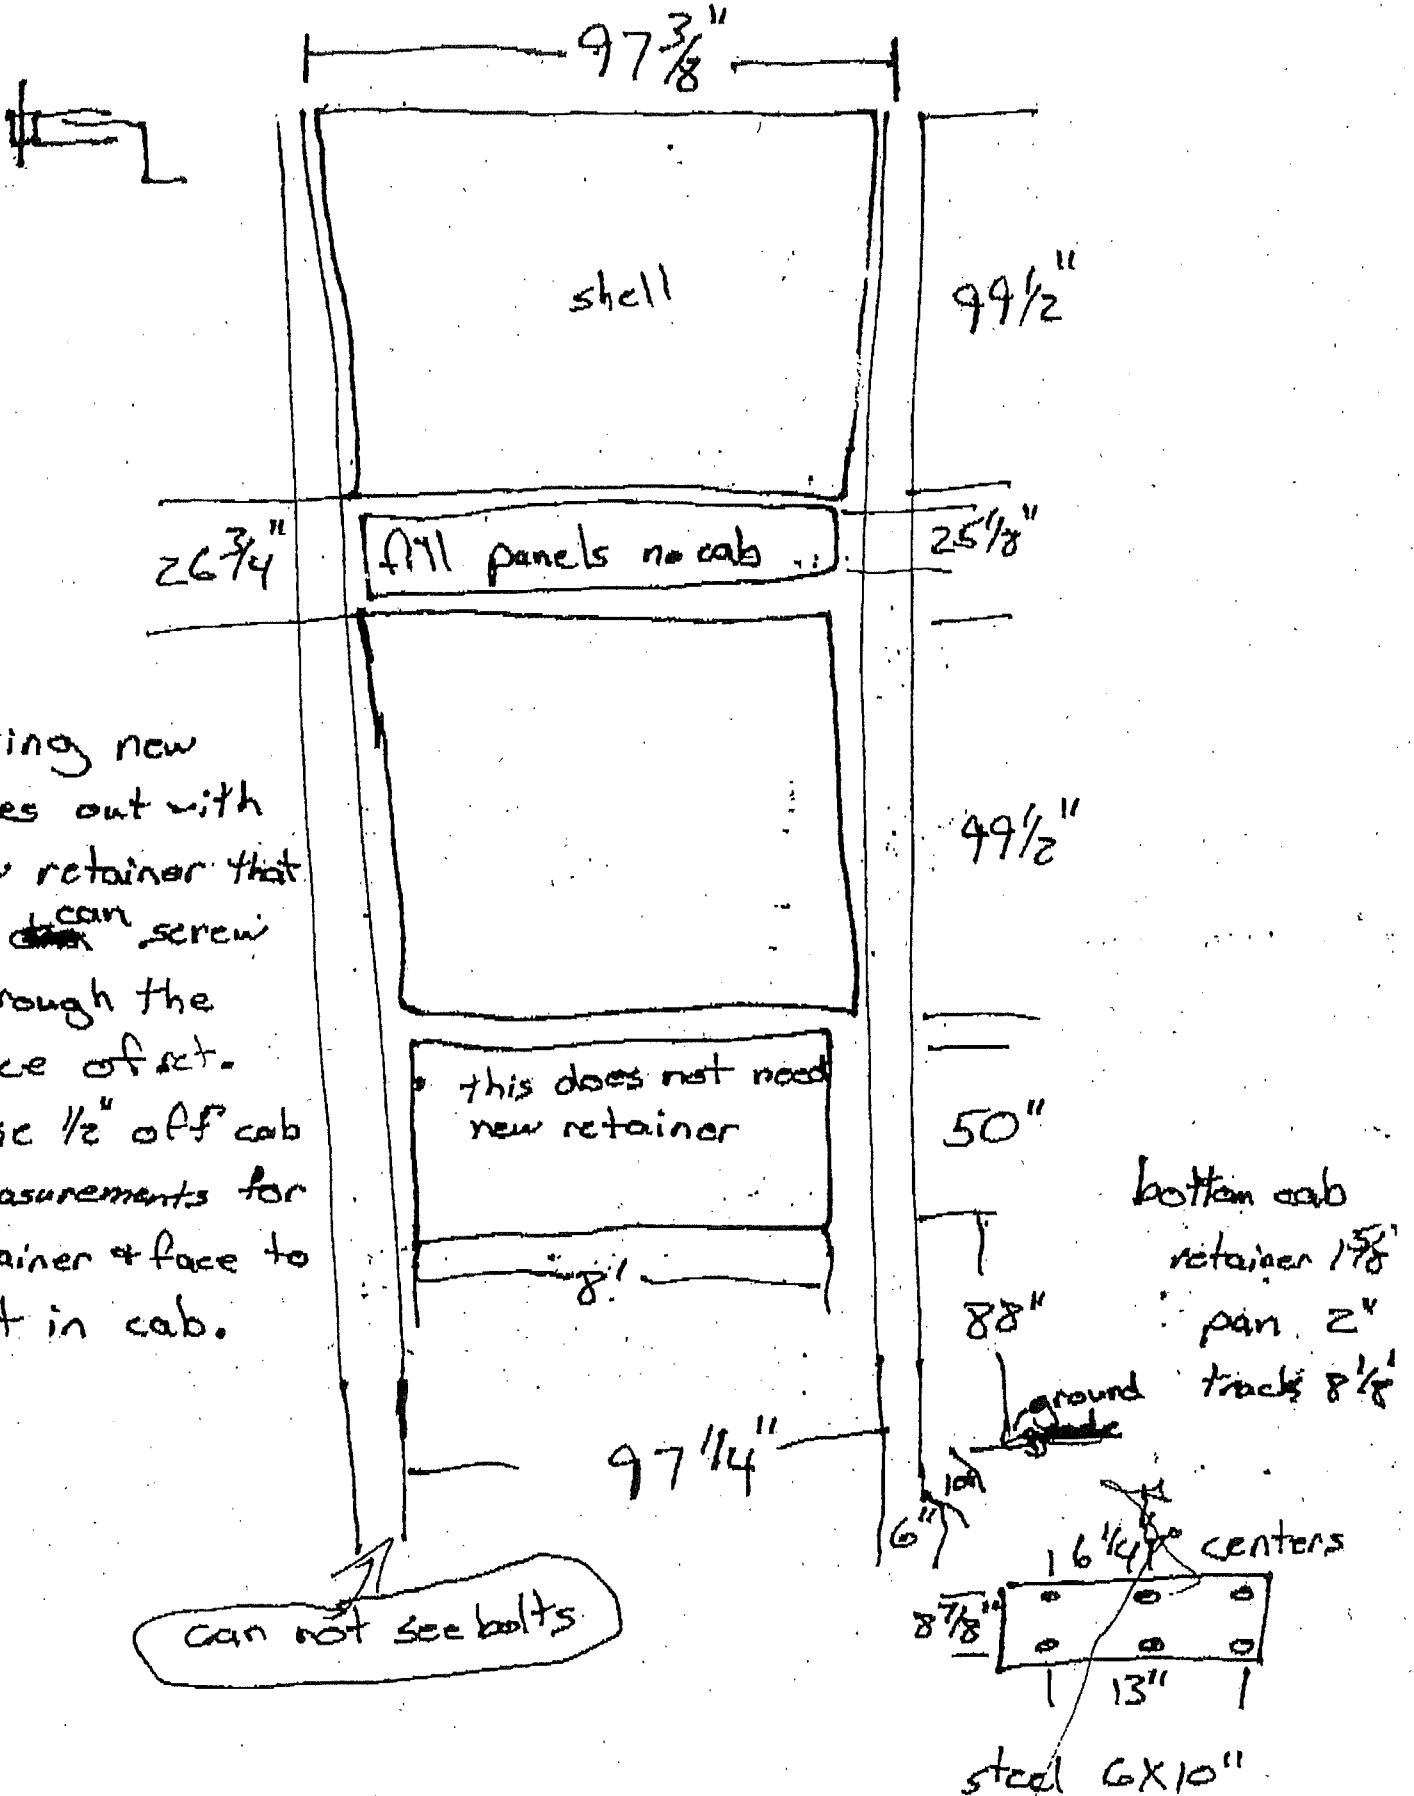 97 3/8"
shell
99 1/2"
26 3/4"
fill panels no cab
25 1/8"
ing new
es out with
retainer that
can screw
rough the
ce ofset.
se 1/2" off cab
asurements for
ainer & face to
t in cab.
99 1/2"
this does not need
new retainer
50"
8'
88"
bottom cab
retainer 1 5/8"
pan 2"
tracks 8 1/8"
ground
97 1/4"
10"
6"
can not see bolts
6 1/4"
centers
8 7/8"
13"
steel 6X10"